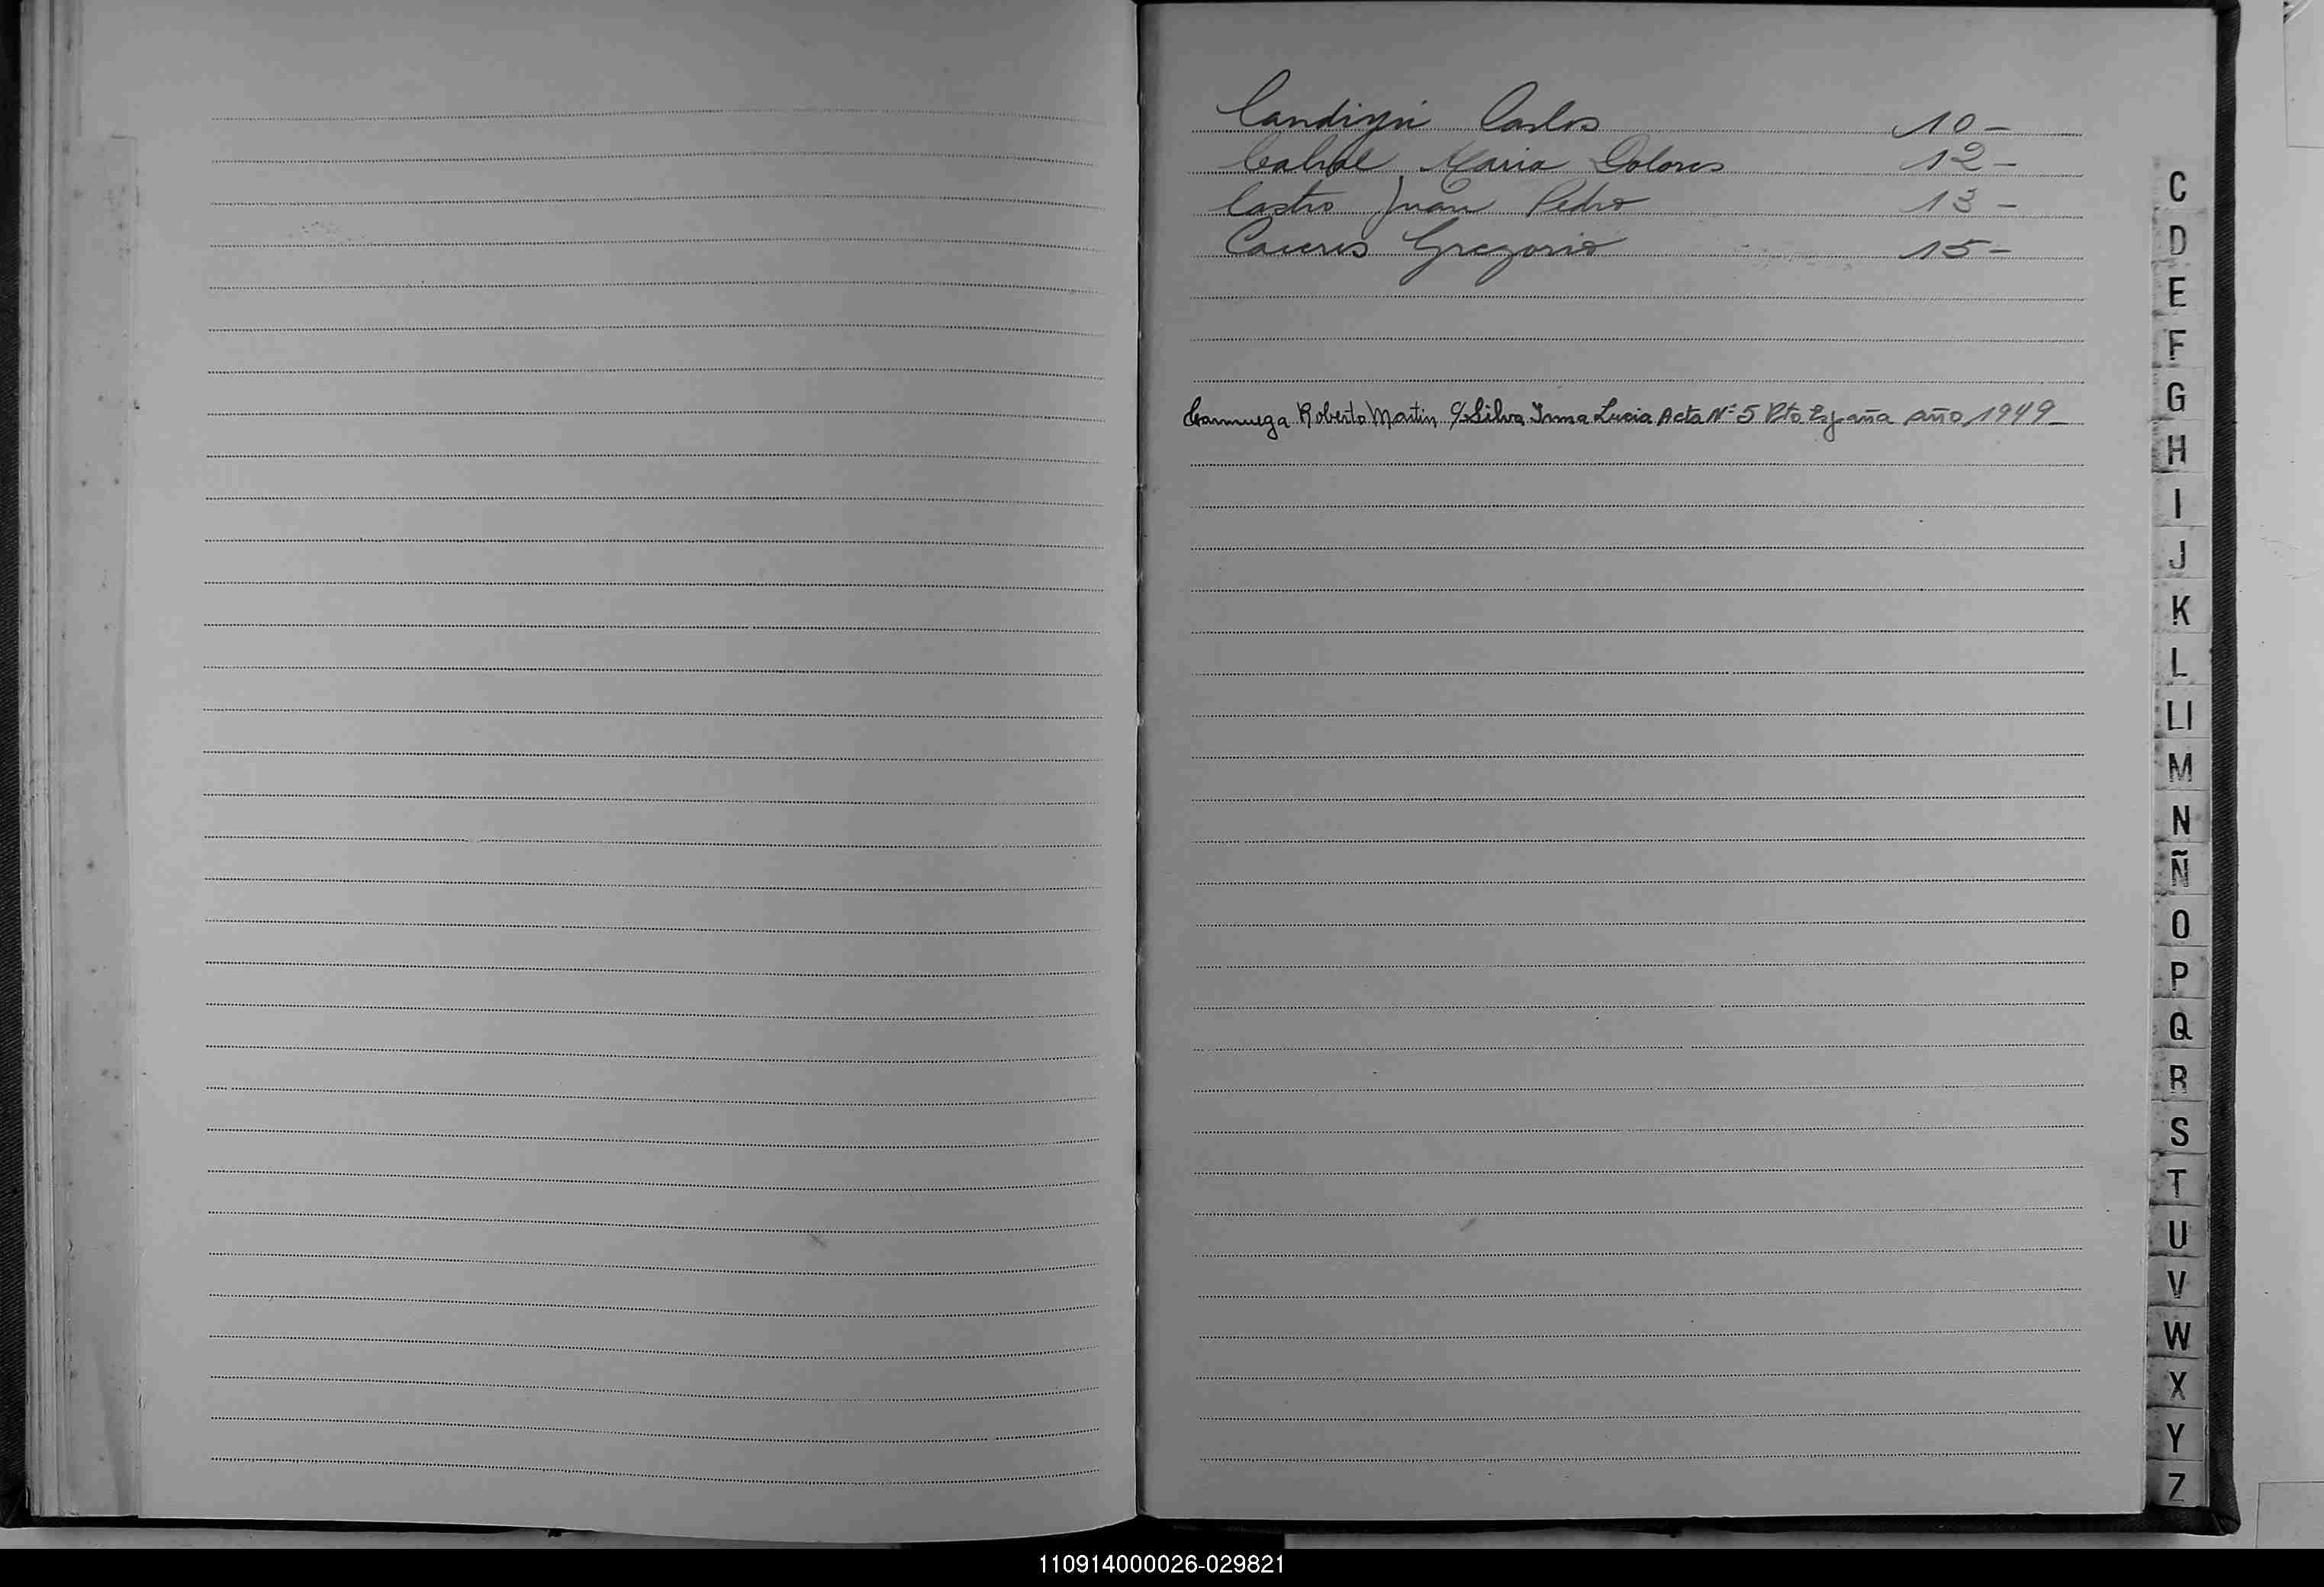 Carlos 10-
Cabral Maria Dolores 12-
Castro Juan Pedro 13-
Caceres Gregorio 15-
Cammuega Roberto Martin c/Silva Irma Lucia Acta Nº 5 Pto España año 1949-
C
D
E
F
G
H
I
J
K
L
Ll
M
N
Ñ
O
P
Q
R
S
T
U
V
W
X
Y
Z
110914000026-029821